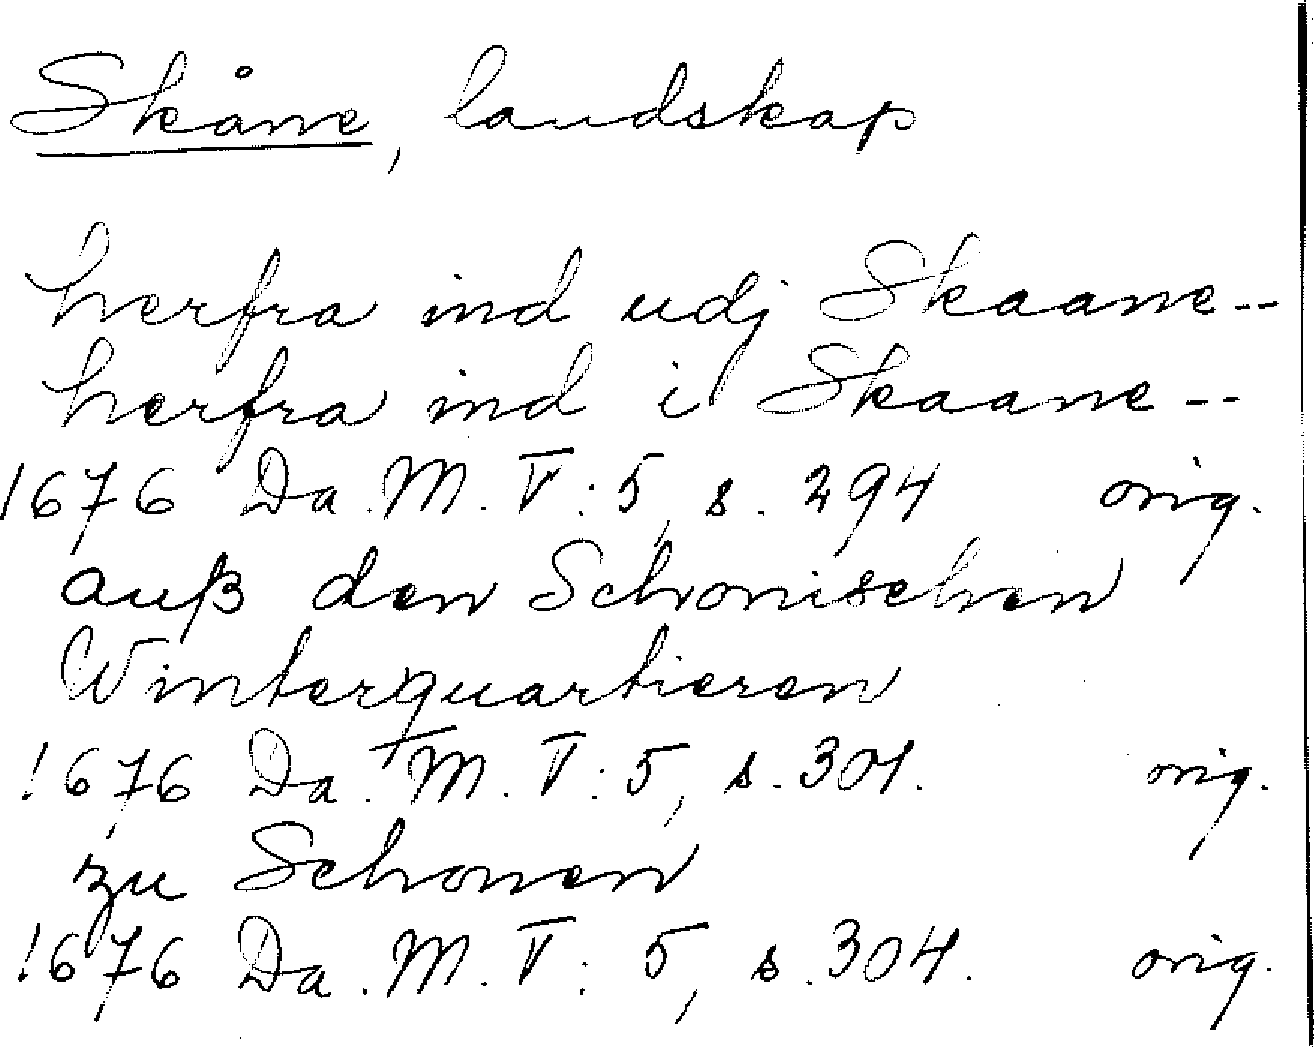 Skåne, landskap
herfra ind udj Skaane--
herfra ind i Skaane--
1676 Da. M. V: 5, s. 294 orig.
auß den Schonischen
Winterquartieren
1676 Da. M. V: 5, s. 301. orig.
zu Schonen
1676 Da. M. V: 5, s. 304. orig.